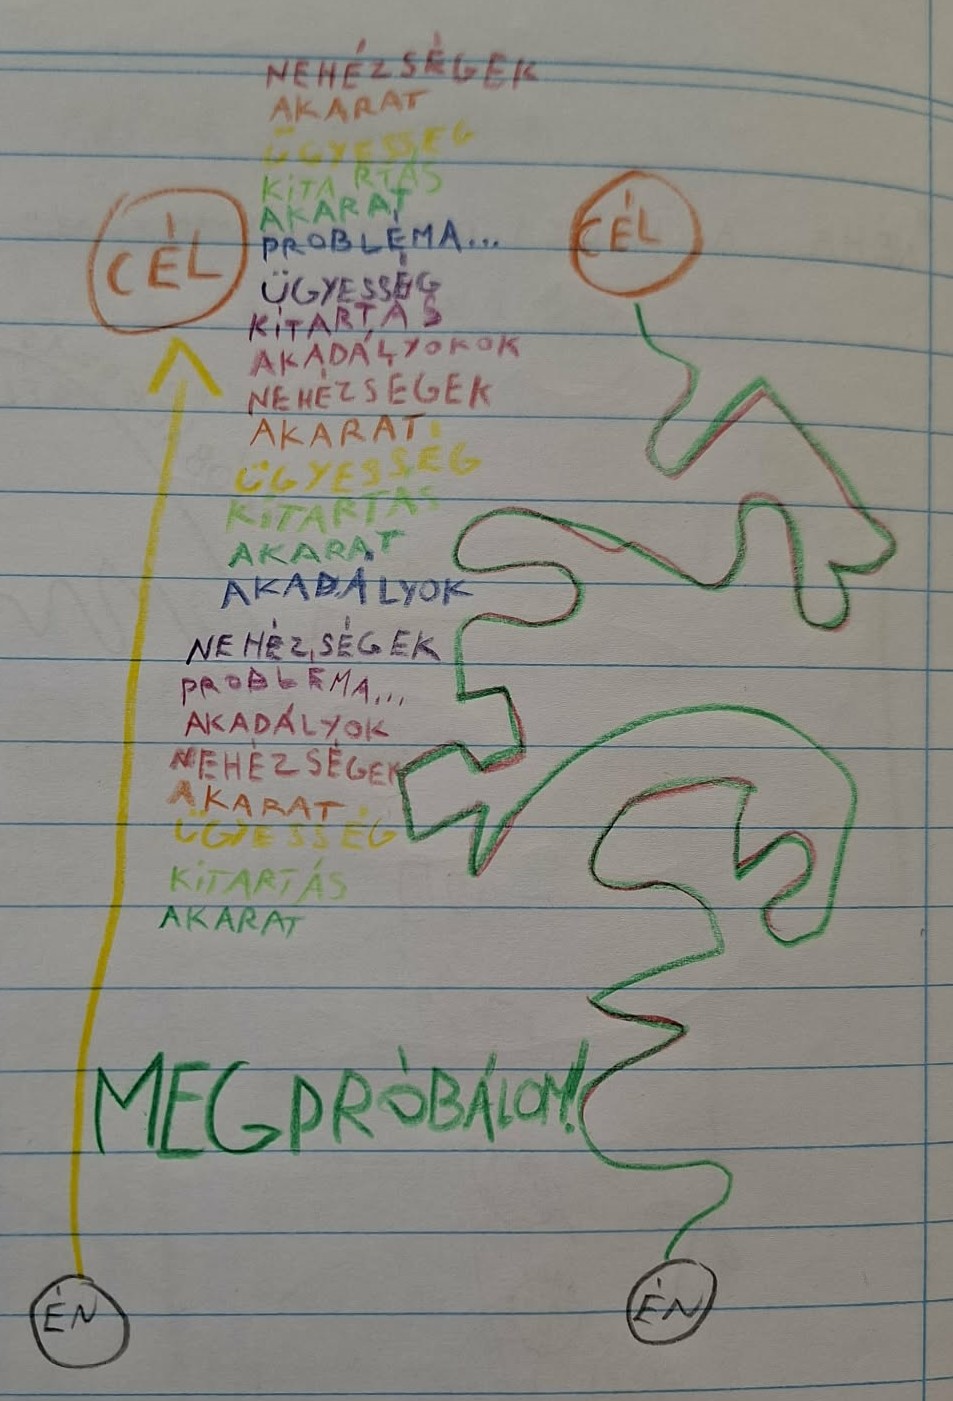 NEHÉZSÉGEK
AKARAT
ÜGYESSÉG
KITARTÁS
AKARAT
CÉL
CÉL
PROBLÉMA...
ÜGYESSÉG
KITARTÁS
AKADÁLYOKOK
NEHÉZSÉGEK
AKARAT
ÜGYESSÉG
KITARTÁS
AKARAT
AKADÁLYOK
NEHÉZSÉGEK
PROBLÉMA...
AKADÁLYOK
NEHÉZSÉGEK
AKARAT
ÜGYESSÉG
KITARTÁS
AKARAT
MEGPRÓBÁLOM!
ÉN
ÉN